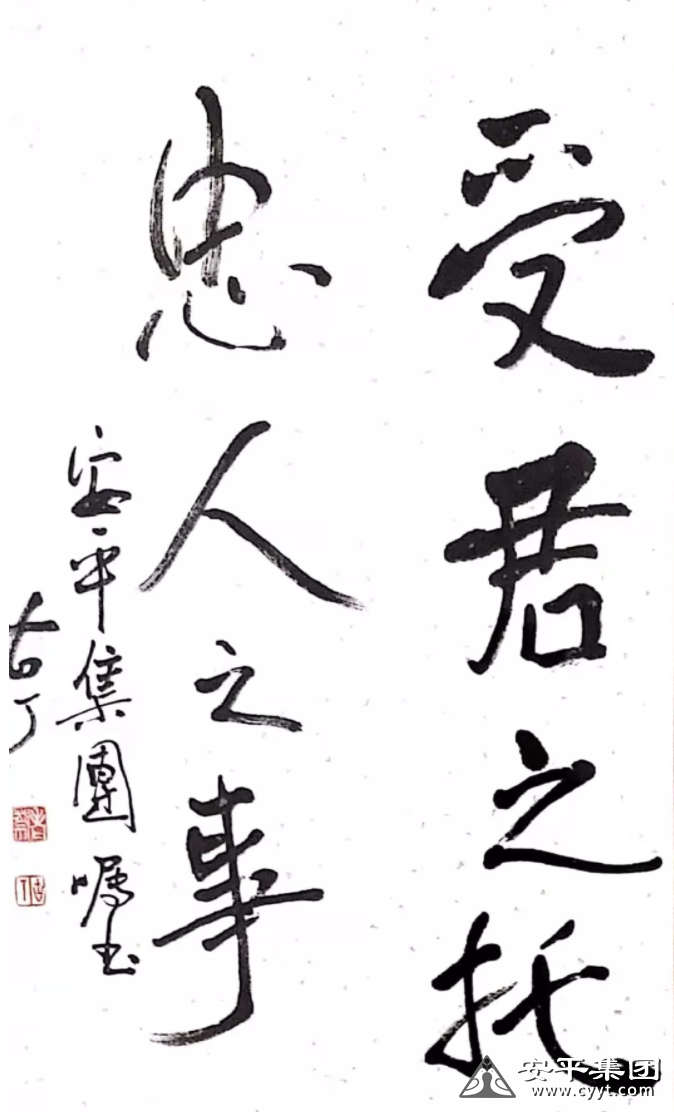 受君之托
忠人之事
安平集團嘱书
古丁
安平集团
www.cyyt.com